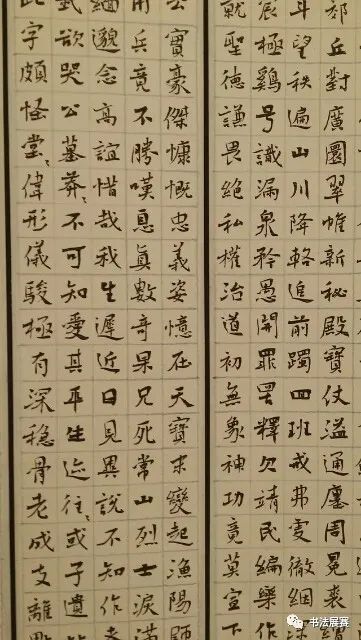 郊丘對廣圜翠帷新秘殿寶仗溢通廛周冕裘
斗望秩遍山川降輅追前躅四班戒弗虔徹
宸極鷄号識漏泉矜愚開罪罟釋欠靖民編樂
就聖德謙畏絶私權治道初無象神功竟莫宣下
公實豪傑慷慨忠義姿憶在天寶末變起漁陽師
用兵竟不勝嘆息真數奇杲兄死常山烈士淚滿
緬邈念高誼惜哉我生遲近日見異説不知作者
武欲哭公墓莽、不可知愛其平生迹往、或孑遺
此字頗怪堂、偉形儀駿極有深穩骨老成支離
书法展赛